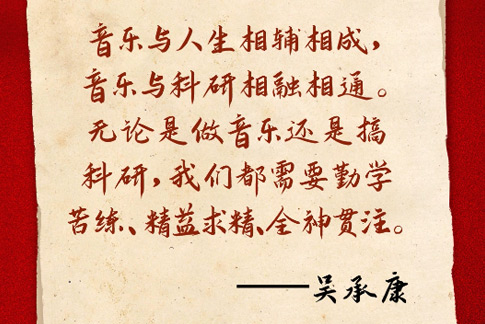 音乐与人生相辅相成,
音乐与科研相融相通。
无论是做音乐还是搞
科研,我们都需要勤学
苦练、精益求精、全神贯注。
——吴承康